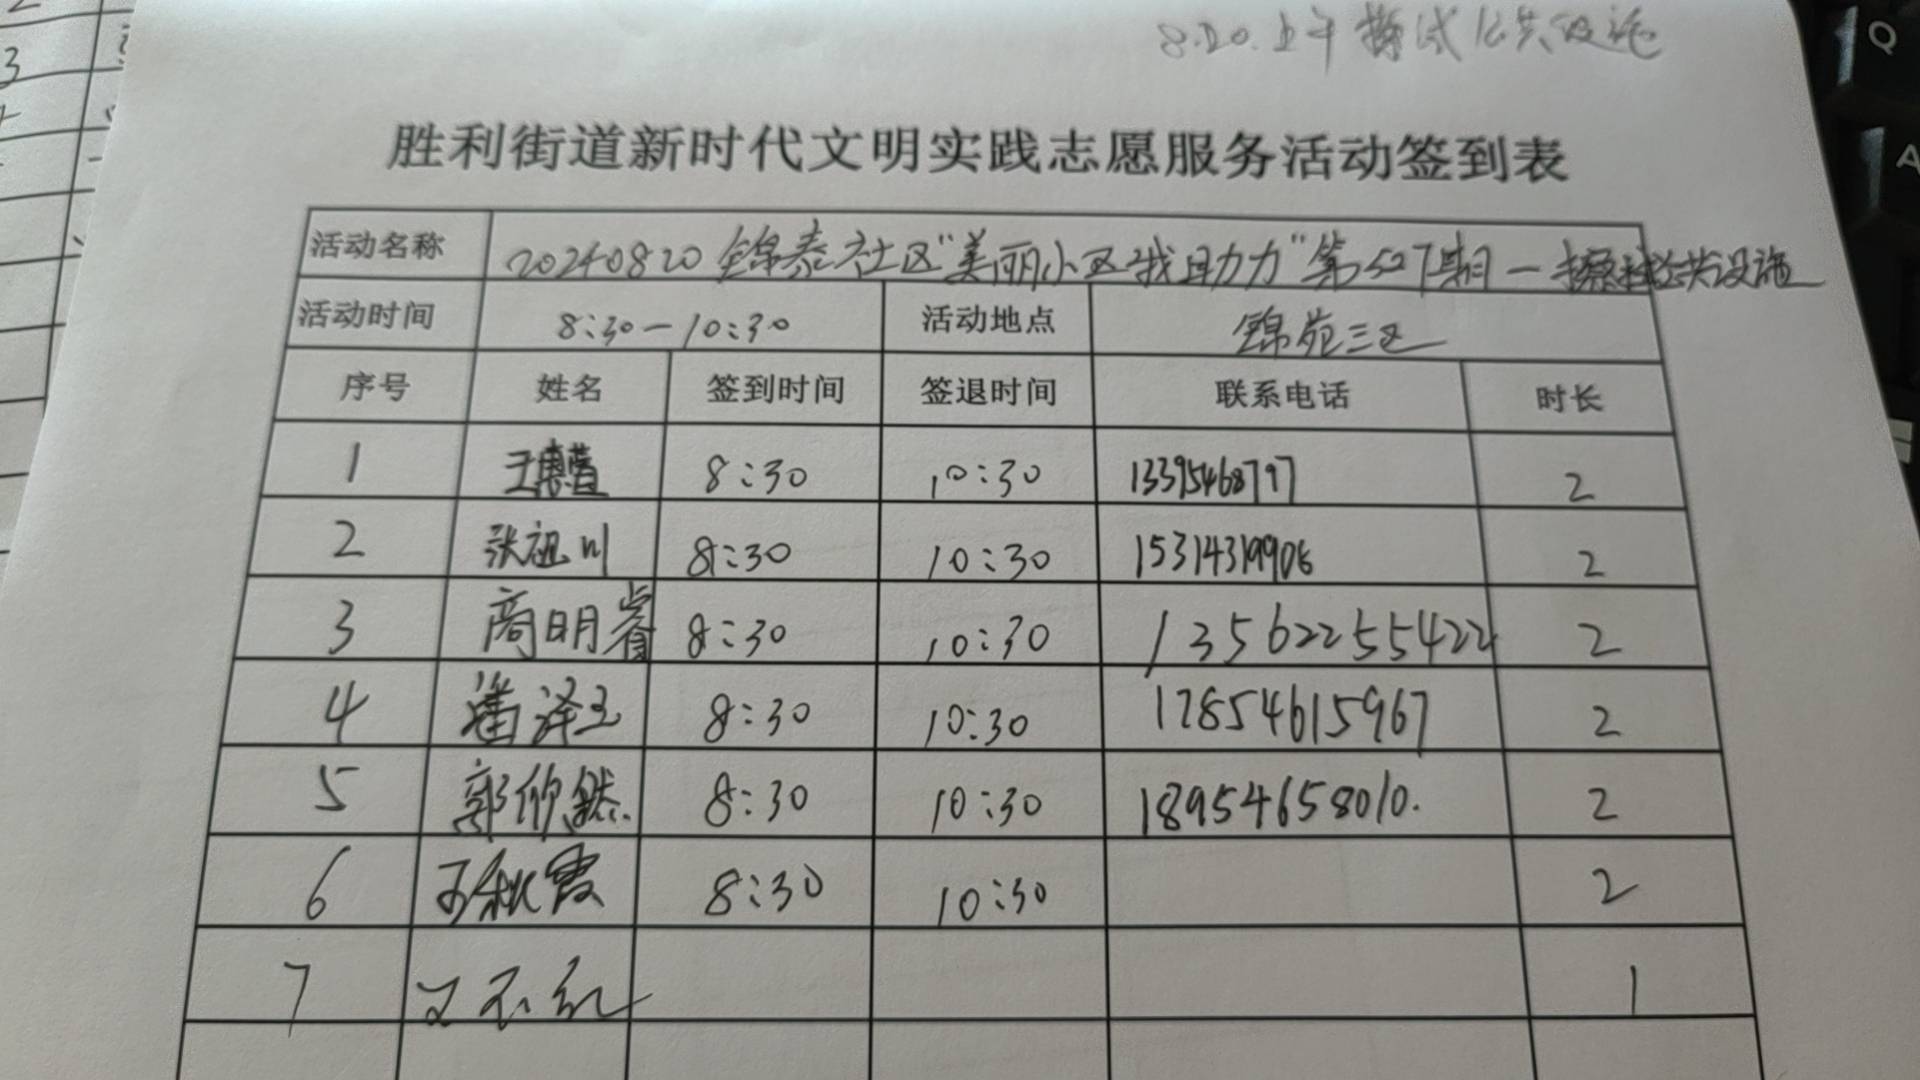 8.20.上午擦拭公共设施
胜利街道新时代文明实践志愿服务活动签到表
活动名称 20240820锦泰社区"美丽小区我助力"第527期—擦拭公共设施
活动时间 8:30—10:30 活动地点 锦苑三区
序号 姓名 签到时间 签退时间 联系电话 时长
1 8:30 10:30 13395468797 2
2 张祖川 8:30 10:30 15314319906 2
3 商明睿 8:30 10:30 13562255422 2
4 潘泽玉 8:30 10:30 17854615967 2
5 郭欣然. 8:30 10:30 18954658010. 2
6 王秋霞 8:30 10:30 2
7 1